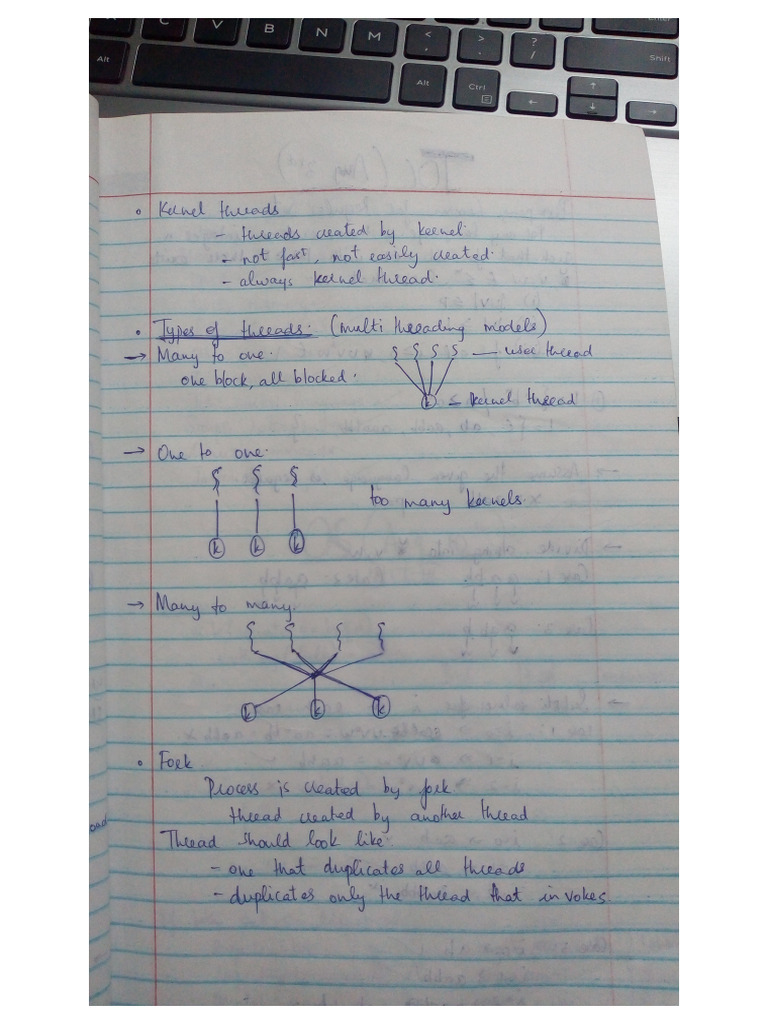 C V B N M < , > . ? / Enter
Alt Alt Ctrl Shift
← ↑ ↓ →
• Kernel threads
- threads created by kernel.
- not fast, not easily created.
- always kernel thread.
• Types of threads. (multi threading models)
→ Many to one. — user thread
one block, all blocked.
k — kernel thread
→ One to one.
too many kernels
k k k
→ Many to many.
k k k
• Fork
Process is created by fork
thread created by another thread
Thread should look like:
- one that duplicates all threads
- duplicates only the thread that invokes